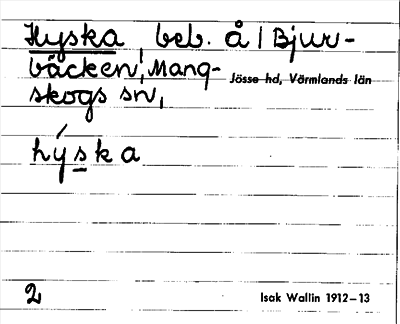 Hyska, beb. å | Bjur-
bäcken|, Mang-
skogs sn,
Jösse hd, Värmlands län
hý̱ska
2
Isak Wallin 1912–13